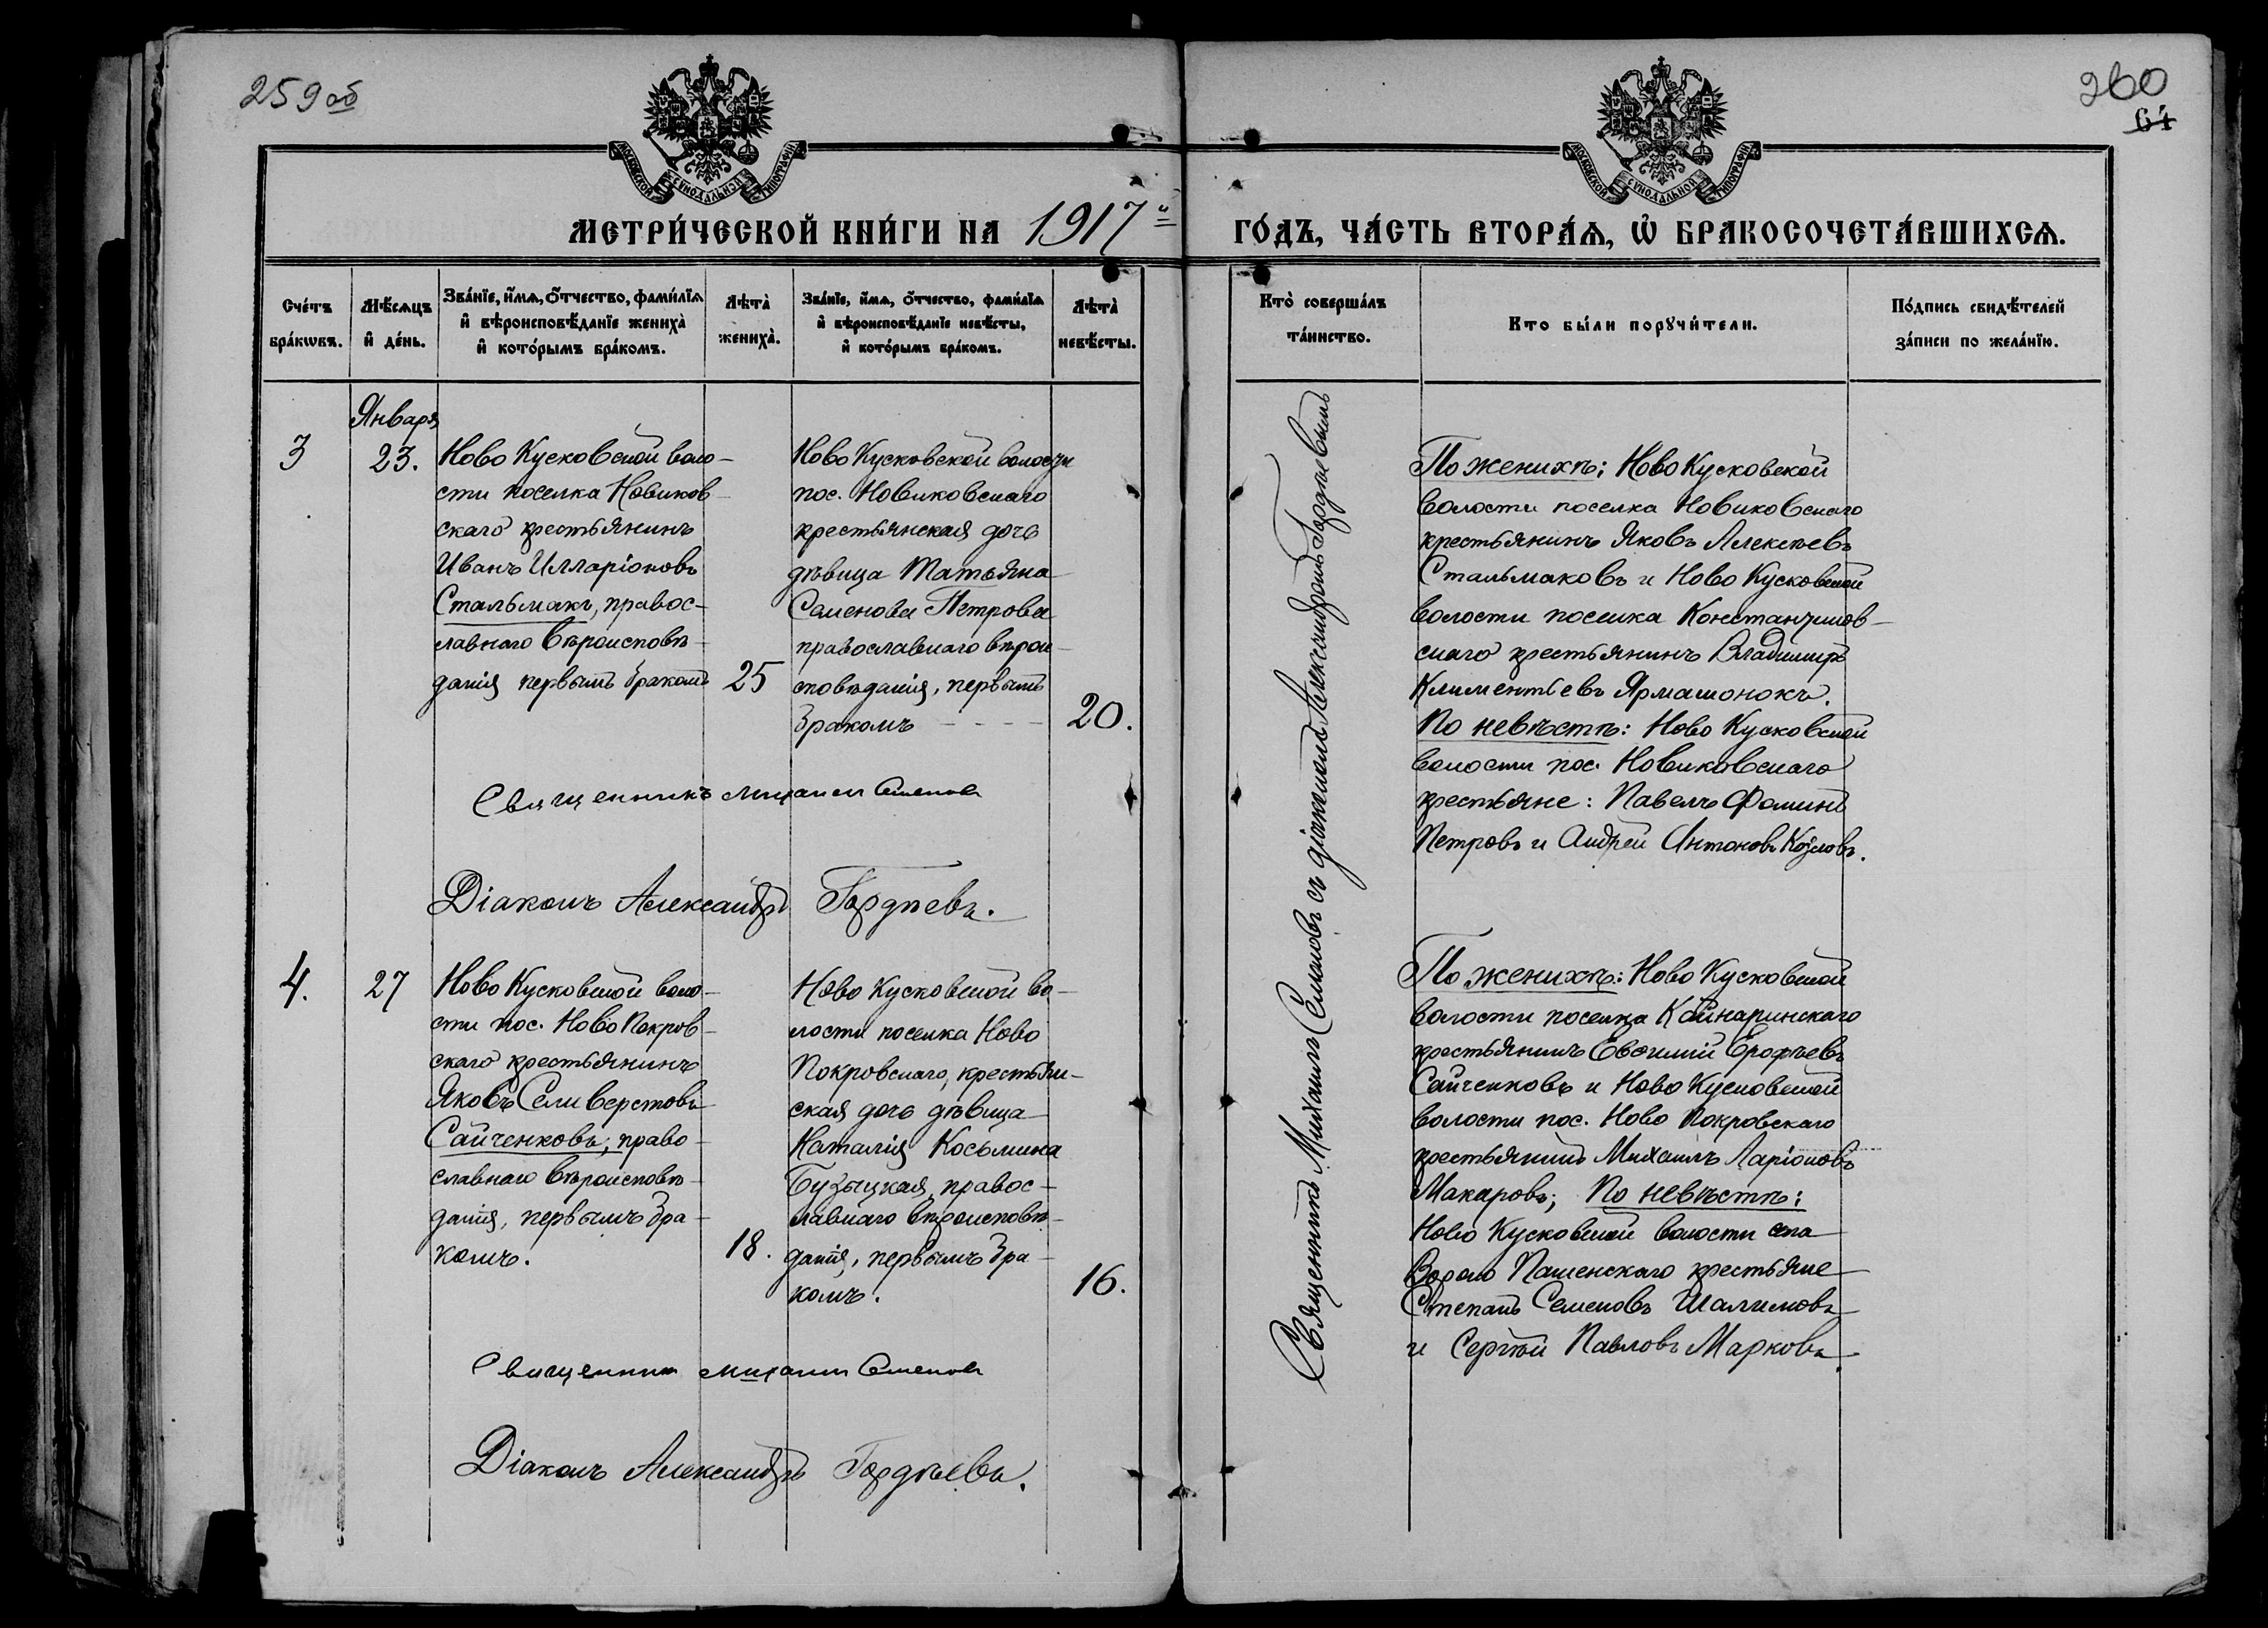 259 об
260
64
МОСКОВСКОЙ СѴНОДАЛЬНОЙ ТИПОГРАФІИ
МОСКОВСКОЙ СѴНОДАЛЬНОЙ ТИПОГРАФІИ
МЕТРИ́ЧЕСКОЙ КНИ́ГИ НА 1917й
ГО́ДЪ, ЧА́СТЬ ВТОРА́Ѧ, Ѡ҆ БРАКОСОЧЕТА́ВШИХСѦ.
Сче́тъ
бра́кωвъ.
Мѣ́сѧцъ
и҆ де́нь.
Зва́нїе, и҆́мѧ, ѻ҆́тчество, фами́лїѧ
и҆ вѣроисповѣ́данїе жениха̀
и҆ кото́рымъ бра́комъ.
Лѣта̀
жениха̀.
Зва́нїе, и҆́мѧ, ѻ҆́тчество, фами́лїѧ
и҆ вѣроисповѣ́данїе невѣ́сты,
и҆ кото́рымъ бра́комъ.
Лѣта̀
невѣ́сты.
Кто̀ соверша́лъ
та́инство.
Кто бы́ли порꙋчи́тели.
По́дпись свидѣ́телей
за́писи по жела́нїю.
3
Января
23.
Ново Кусковской воло-
сти поселка Новиков-
скаго крестьянинъ
Иванъ Илларіоновъ
Стальмакъ, правос-
лавнаго вѣроисповѣ-
данія первымъ бракомъ
25
Ново Кусковской волости
пос. Новиковскаго
крестьянская дочь
дѣвица Татьяна
Семенова Петрова
православнаго вѣрои-
сповѣданія, первымъ
бракомъ - - - -
20.
Священникъ Михаилъ Семеновъ
Діаконъ Александръ Гордѣевъ.
По женихѣ: Ново Кусковской
волости поселка Новиковскаго
крестьянинъ Яковъ Алексѣевъ
Стальмаковъ и Ново Кусковской
волости поселка Константинов-
скаго крестьянинъ Владимиръ
Климентьевъ Ярмашонокъ.
По невѣстѣ: Ново Кусковской
волости пос. Новиковскаго
крестьяне: Павелъ Фоминъ
Петровъ и Андрей Антоновъ Козловъ.
Священникъ Михаилъ Семеновъ съ діакономъ Александромъ Гордѣевымъ
4.
27
Ново Кусковской воло-
сти пос. Ново Покров-
скаго крестьянинъ
Яковъ Селиверстовъ
Сайченковъ, право-
славнаго вѣроисповѣ-
данія, первымъ бра-
комъ.
18.
Ново Кусковской во-
лости поселка Ново
Покровскаго, крестьян-
ская дочь дѣвица
Наталія Косьмина
Бузыцкая, правос-
лавнаго вѣроисповѣ-
данія, первымъ бра-
комъ.
16.
Священникъ Михаилъ Семеновъ
Діаконъ Александръ Гордѣевъ.
По женихѣ: Ново Кусковской
волости поселка Кайнаринскаго
крестьянинъ Евѳимій Ерофѣевъ
Сайченковъ и Ново Кусковской
волости пос. Ново Покровскаго
крестьянинъ Михаилъ Ларіоновъ
Макаровъ; По невѣстѣ:
Ново Кусковской волости села
Пашенскаго крестьяне
Степанъ Семеновъ Шалимовъ
и Сергѣй Павловъ Марковъ.